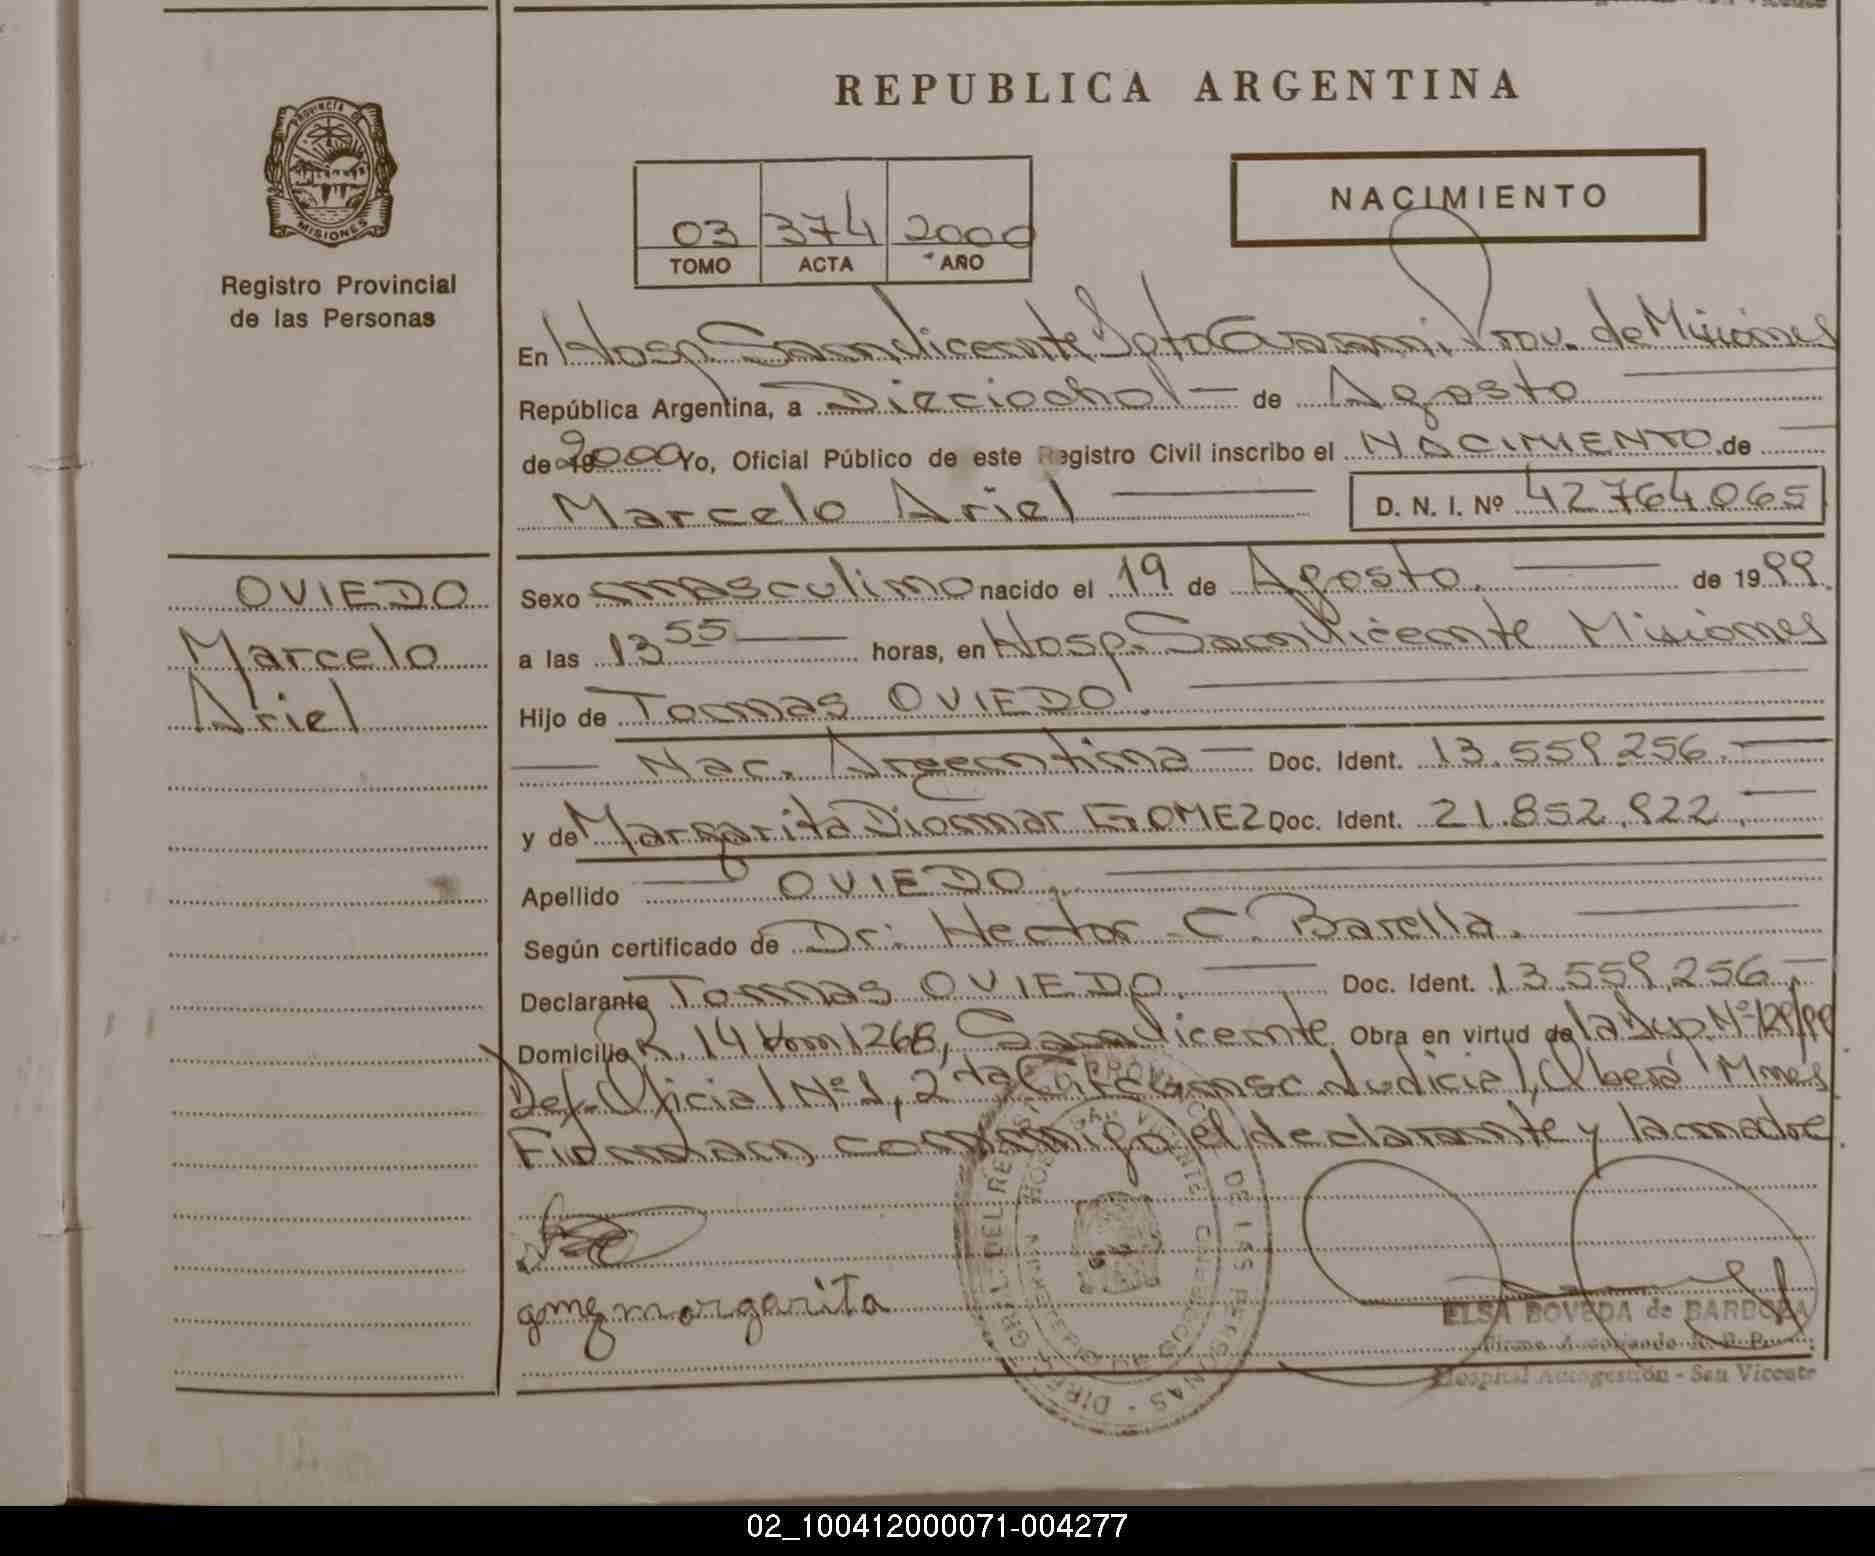 REPUBLICA ARGENTINA
PROVINCIA DE
MISIONES
Registro Provincial
de las Personas
NACIMIENTO
03 374 2000
TOMO ACTA AÑO
En Hosp San Vicente Dpto Guarani, Prov. de Misiones
República Argentina, a Dieciocho — de Agosto
de 19 2000 Yo, Oficial Público de este Registro Civil inscribo el NACIMIENTO de
Marcelo Ariel D. N. I. Nº 42764065
OVIEDO
Marcelo
Ariel
Sexo masculino nacido el 19 de Agosto. de 1999.
a las 13 55 horas, en Hosp. San Vicente Misiones
Hijo de Tomas OVIEDO.
Nac. Argentina — Doc. Ident. 13.559.256.
y de Margarita Diomar GOMEZ Doc. Ident. 21.852.922.
Apellido OVIEDO.
Según certificado de Dr. Hector C. Barella.
Declarante Tomas OVIEDO. Doc. Ident. 13.559.256.
Domicilio R. 14 Km 1268, San Vicente. Obra en virtud de la Nº 129/99
Def. Oficial Nº 1, 2da Judicial, Oberá Mnes
Firman conmigo el declarante y la madre.
gmez margarita
ELSA BOVEDA de BARBOZA
Firma Autorizada R. P. P.
Hospital Autogestión - San Vicente
02_100412000071-004277